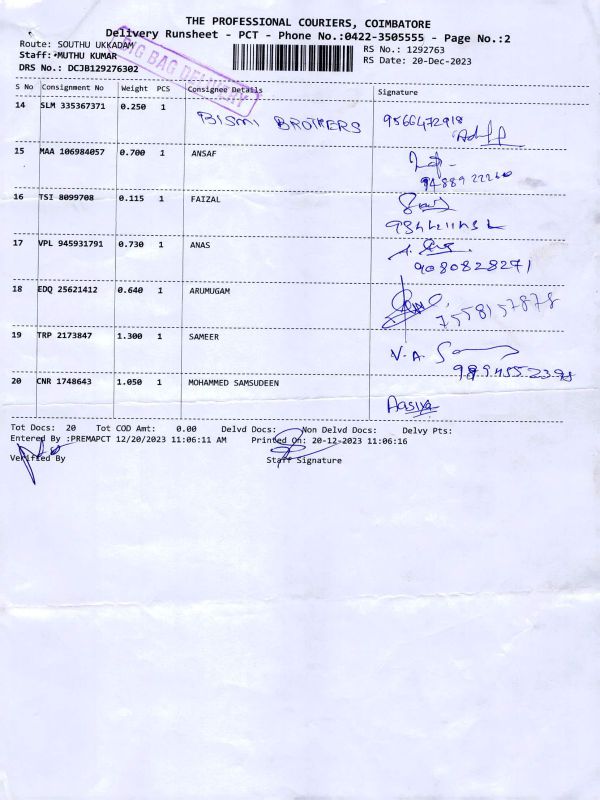 THE PROFESSIONAL COURIERS, COIMBATORE
Delivery Runsheet - PCT - Phone No.:0422-3505555 - Page No.:2
Route: SOUTHU UKKADAM
RS No.: 1292763
Staff: MUTHU KUMAR
RS Date: 20-Dec-2023
DRS No.: DCJB129276302
BIG BAG DELIVERY
S No Consignment No Weight PCS Consignee Details Signature
14 SLM 335367371 0.250 1 BISMI BROTHERS 9566472918
15 MAA 106984057 0.700 1 ANSAF
16 TSI 8099708 0.115 1 FAIZAL
17 VPL 945931791 0.730 1 ANAS
9080828271
18 EDQ 25621412 0.640 1 ARUMUGAM
7558157878
19 TRP 2173847 1.300 1 SAMEER V.A.
20 CNR 1748643 1.050 1 MOHAMMED SAMSUDEEN
Aasiya
Tot Docs: 20 Tot COD Amt: 0.00 Delvd Docs: Non Delvd Docs: Delvy Pts:
Entered By :PREMAPCT 12/20/2023 11:06:11 AM Printed On: 20-12-2023 11:06:16
Verified By Staff Signature